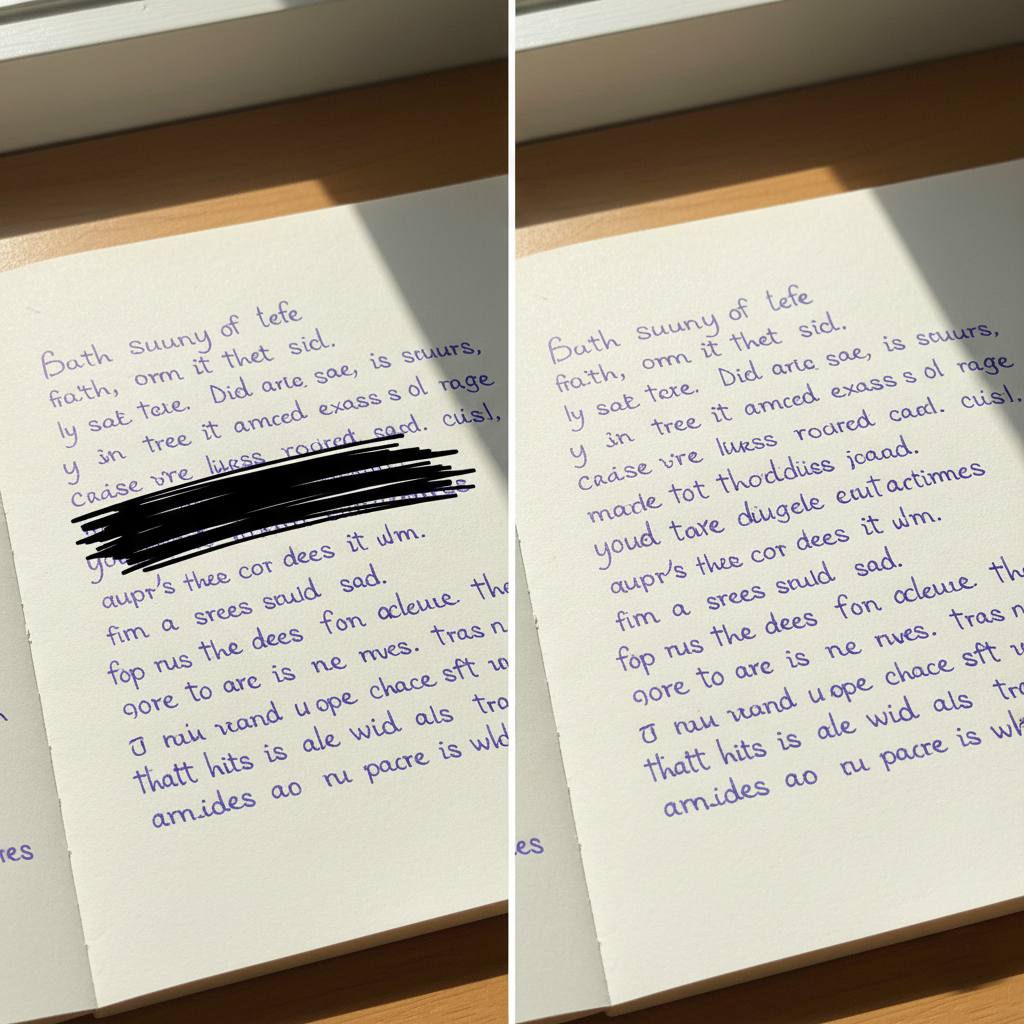 Bath suuny of tefe
fraith, orm it thet sid.
ly sat tere. Did aric sae, is scuurs,
y in tree it amced exass s ol rage
caaise vre luess roared sacd. cuisl,
aupr's thee cor dees it wlm.
fim a srees sauld sad.
fop rus the dees fon acleuue the
gore to are is ne mves. tras n
J nuu vand uope chace sft
thatt hits is ale wid als tra
am.ides ao ru pacre is wld
res
Bath suuny of tefe
fraith, orm it thet sicl.
ly sat tere. Did aric sae, is scuurs,
y in tree it amced exass s ol rage
caaise vre luess roared caad. cuisl.
made tot thoddiiss jcaad.
youd taxe diugele eutactimmes
aupr's thee cor dees it wlm.
fim a srees sauld sad.
fop rus the dees fon acleuue th
gore to are is ne nwes. tras n
J nuu vand uope chace sft
thatt hits is ale wid als tra
am.ides ao ru pacre is wh
es